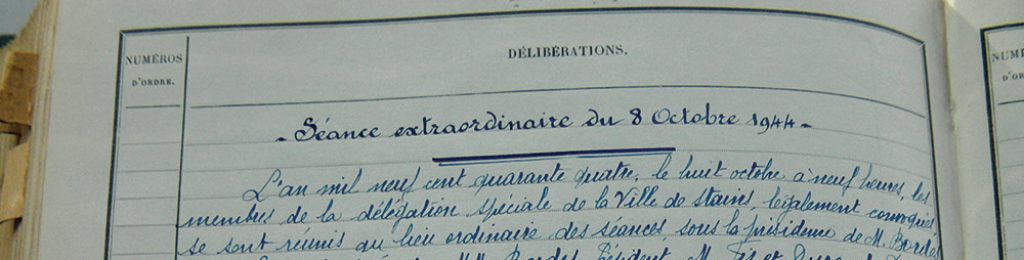 NUMÉROS
D'ORDRE.
DÉLIBÉRATIONS.
- Séance extraordinaire du 8 Octobre 1944 -
L'an mil neuf cent quarante quatre, le huit octobre à neuf heures, les
membres de la délégation spéciale de la Ville de Stains, légalement convoqués
se sont réunis au lieu ordinaire des séances, sous la présidence de M. Bordes
MM. Bordes, Président, M.
NUMÉ
D'O